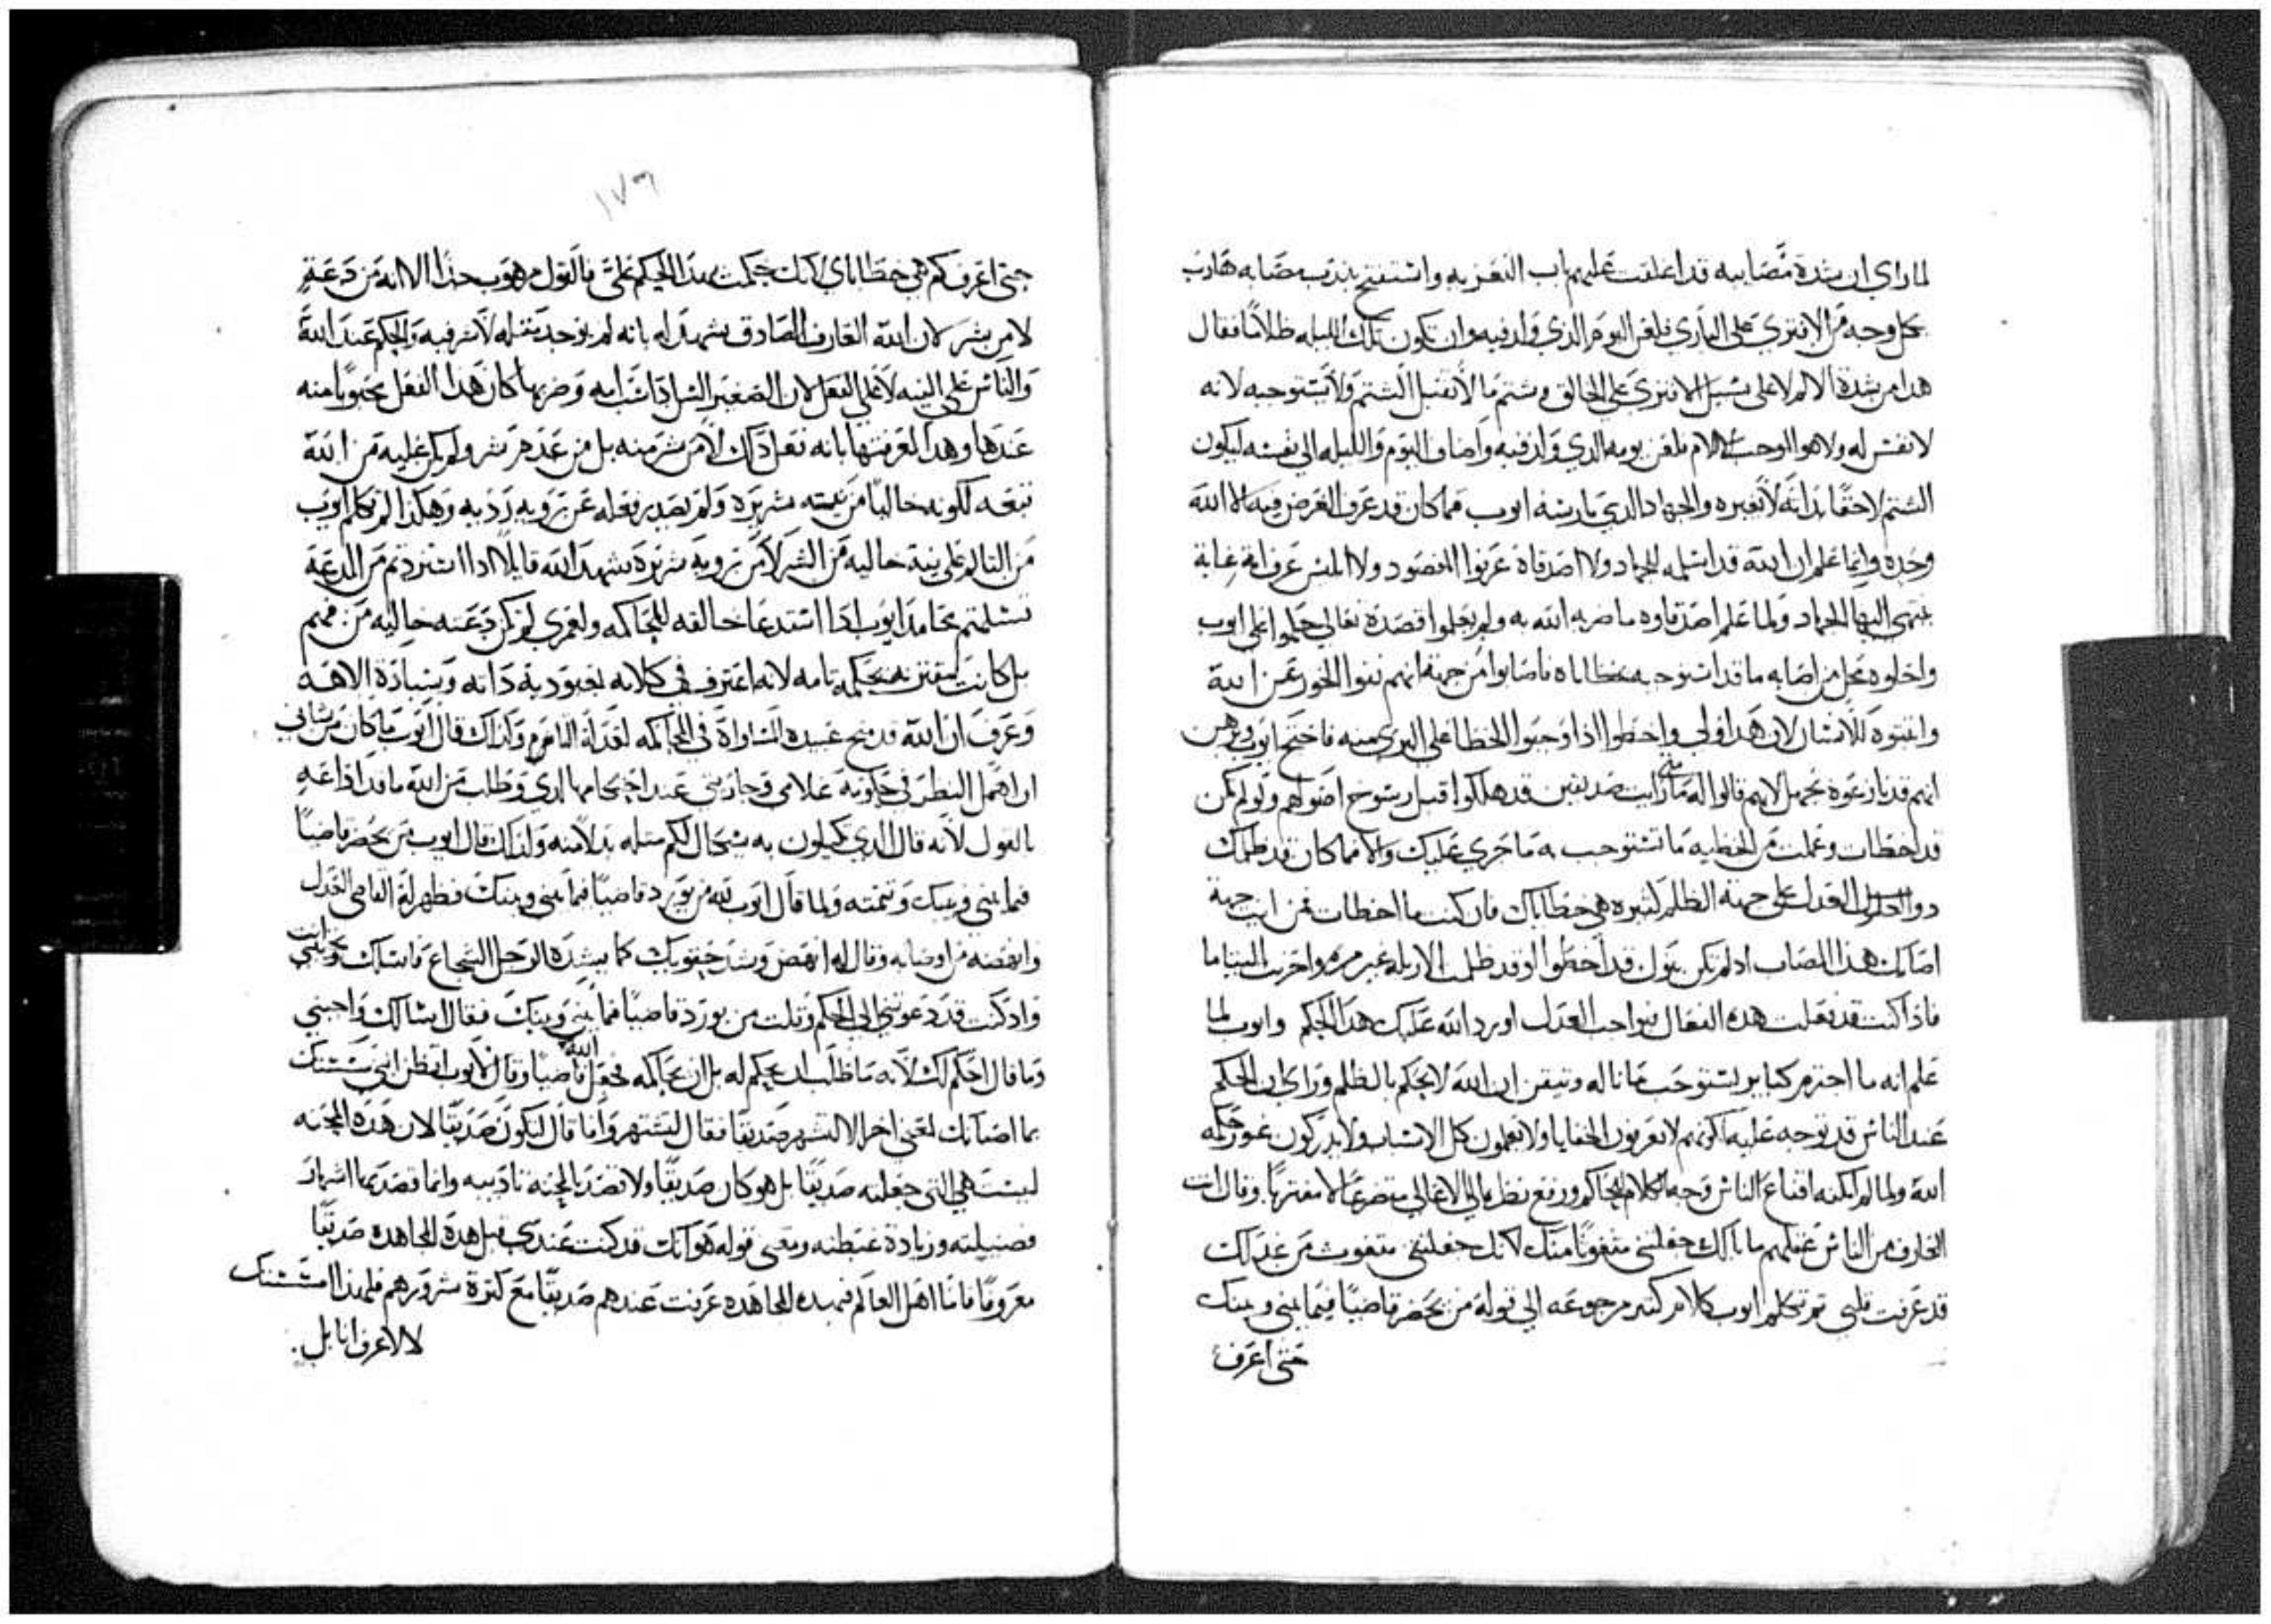 لما راي ان شدة مصابيه قد اغلقت عليهم باب التعزيه واستفتح بندب مصابه هارب
بكل وجه من الافتري علي الباري فلعن اليوم الذي ولد فيه وان تكون تلك الليله ظلامًا فقال
هدا من شدة الالم لا علي سبيل الافتري علي الخالق وشتم ما لا يقبل الشتم ولا يستوجبه لانه
لا نفس له ولا هو الموجب الالام فلعن يومه الدي ولد فيه واضاف اليوم والليله الي نفسه ليكون
الشتم لاحقًا بذاته لا بغيره والجهاد الدي مارسه ايوب فما كان قد عرف الغرض فيه الا الله
وحده وانما علم ان الله قد اسلمه للجهاد ولا اصدقاه عرفوا المقصود ولا ابليس عرف اية غاية
ينتهي اليها الجهاد ولما علم اصدقاوه ما ضربه الله به ولم يعلموا قصده تعالي حكموا علي ايوب
واحلوه محل من اصابه ما قد استوجبه بخطاياه فاصابوا من جهة انهم نفوا الجور عن الله
واثبتوه للانسان لان هدا اولي واخطوا اذ اوجبوا الخطا علي البري منه فاحتج ايوب وبرهن
انهم قد نازعوه بجهل لانهم قالوا له متي رايت صديقين قد هلكوا قبل رسوخ اصولهم ولو لم تكن
قد اخطات وعملت من الخطيه ما تستوجب به ما جري عليك والا فما كان قد ظلمك
دو العدل علي جهة الظلم كثيره هي خطاياك فان كنت ما اخطات فمن اية جهة
اصابك هدا المصاب اد لم تكن بنوك قد اخطوا او قد ظلمت الارمله غير مره واحزنت اليتاما
فاذا كنت قد فعلت هده الفعال فبواجب العدل اورد الله عليك هدا الحكم وايوب لما
علم انه ما اجترم كباير يستوجب ما ناله وتيقن ان الله لا يحكم بالظلم وراي ان الحكم
عند الناس قد توجه عليه لكونهم لا يعرفون الخفايا ولا يعلمون كل الاسباب ولا يدركون غور حكمه
الله ولما لم يمكنه اقناع الناس وجه الكلام للحاكم ورفع نظره الي الاعالي متضرعًا لا مفتريًا وقال انت
العارف من الناس غيرهم ما بالك جعلتني متفوتًا منك لانك جعلتني متفوت من عدلك
قد عرفت قلبي ثم تكلم ايوب كلام كتير مرجوعه الي قوله من يحضر قاضيًا فيما بيني وبينك
حتي اعرف
١٧٦
حتي اعرف كم هي خطاياي لانك حكمت بهدا الحكم علي فالقول مرهوب جدًا الا انه من دعة
لا من شر لان الله العارف الصادق يشهد له بانه لم يوجد مثله لا شر فيه والحكم عند الله
والناس علي النيه لا علي الفعل لان الصغير السن اذا شب امه وضربها كان هدا الفعل محبوبًا منه
عندها وهدا لمعرفتها بانه فعل ذلك لا من شر منه بل من عدم شر ولم يكن عليه من الله
تبعه لكونه خاليًا من نيه شريره ولم يصدر فعله عن رويه رديه وهكذا لم تكلم ايوب
من التالم علي نية خاليه من الشر لا من رويه شريره شهد الله قايلًا اذا استردتم من الدعة
تسلمتم محامد ايوب ادا استدعا خالقه للمحاكمه ولعمري لم تكن دعته خاليه من فهم
بل كانت مقترنه بحكمه تامه لانه اعترف في كلامه بعبودية ذاته وبسيادة الاهه
وعرف ان الله قد منح عبيده المساواة في المحاكمه لعدله التام ولذلك قال ايوب ما كان من شاني
ان اهمل النظر في حكومة غلامي وجاريتي عند احتكامهما لدي وطلب من الله ما قد اذاعه
بالقول لانه قال الدي تكيلون به يكال لكم مثله بدلا منه ولذلك قال ايوب من يحضر قاضيًا
فيما بيني وبينك وتممته ولما قال ايوب لله من يورد قاضيًا فيما بيني وبينك فظهر له القاضي العدل
وانهضه من اوصابه وقال له انهض وشد حقويك كما يشده الرجل الشجاع فاسلك وتجيبني انت
واد كنت قد دعوتني الي الحكم وقلت من يورد قاضيًا فيما بيني وبينك فقال اسالك واجبني
وما قال احكم لك لانه ما طلب ان يحكم له بل ان يحاكمه فجعل الله قاضيًا وقال لايوب اتظن انني
بما اصابك لمعني اخر الا لتشهر صديقا فقال لتشتهر وما قال لتكون صديقًا لان هذه المحنه
ليست هي التي جعلته صديقًا بل هو كان صديقًا ولا قصد بالمحنه تاديبه وانما قصد بها اشهار
فضيلته وزيادة غبطته ومعني قوله هو انك قد كنت عندي قبل هده المجاهده صديقًا
معروفًا فاما اهل العالم فبهده المجاهده عرفت عندهم صديقًا مع كثرة شرورهم فلهدا
لا لاعرف انا بل